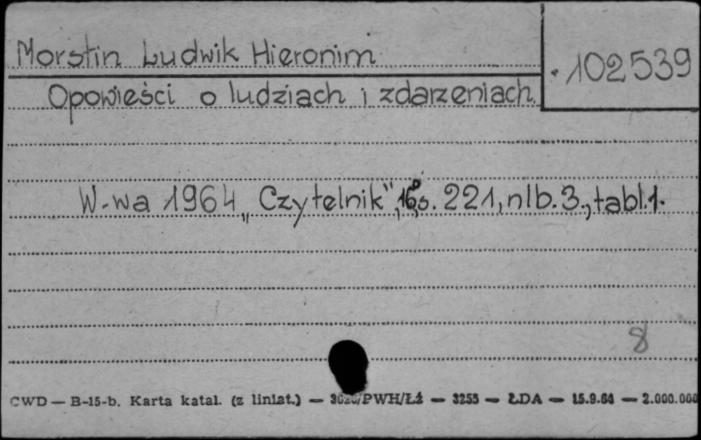 Morstin Ludwik Hieronim
102539
Opowieści o ludziach i zdarzeniach.
W-wa 1964 „Czytelnik", 16°, s. 221, nlb. 3, tabl. 1.
8
CWD — B-15-b. Karta katal. (z liniat.) — /PWH/Łż — 3255 — ŁDA — 15.9.64 — 2.000.000